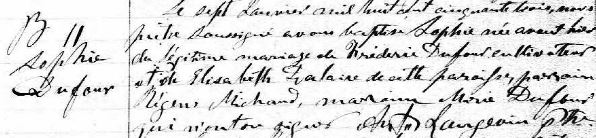 B 11
Sophie
Dufour
Le sept Janvier mil huit cent cinquante trois, nous
prêtre soussigné avons baptisé Sophie née avant hier
du légitime mariage de Fréderic Dufour cultivateur
et de Elisabeth Galaire de cette paroisse, parrain
Régens Michaud, marraine Marie Dufour
qui n'ont su signer Langevin Ptre